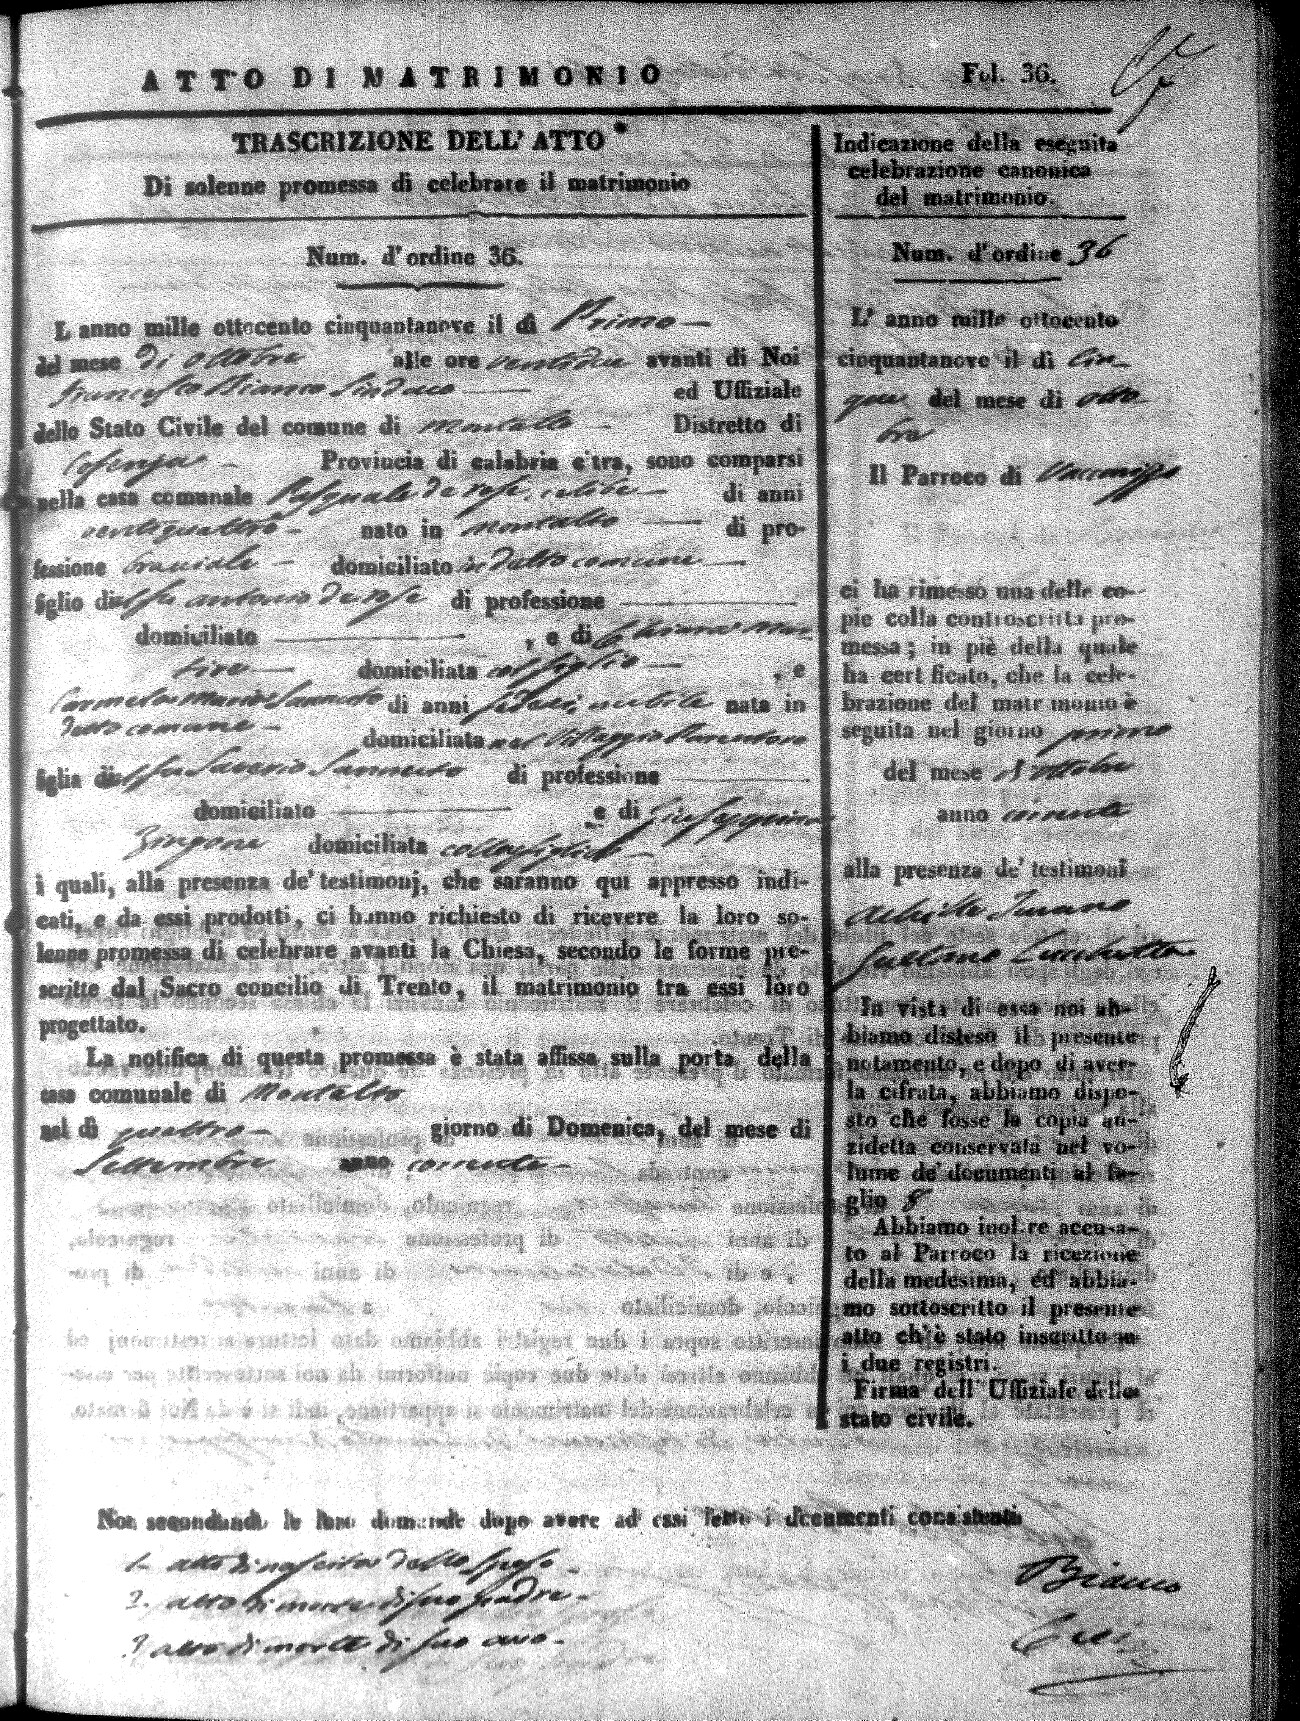 ATTO DI MATRIMONIO
Fol. 36.
TRASCRIZIONE DELL' ATTO
Di solenne promessa di celebrare il matrimonio
Num. d' ordine 36.
L anno mille ottocento cinquantanove il dì Primo
del mese di Ottobre alle ore ventidue avanti di Noi
Francesco Bianco Sindaco ed Uffiziale
dello Stato Civile del comune di Montalto Distretto di
Cosenza Provincia di calabria citra, sono comparsi
nella casa comunale Pasquale de rose, celibe di anni
ventiquattro nato in Montalto di pro-
fessione braciale domiciliato in detto comune
figlio di antonio de rose di professione
domiciliato , e di Chiara
domiciliata col figlio , e
Carmela Maria Sannuto di anni sedeci, nubile nata in
detto comune domiciliata nel Villaggio
figlia di Saverio Sannuto di professione
domiciliato e di Giuseppina
Zingone domiciliata colla figlia
i quali, alla presenza de' testimonj, che saranno qui appresso indi-
cati, e da essi prodotti, ci hanno richiesto di ricevere la loro so-
lenne promessa di celebrare avanti la Chiesa, secondo le forme pre-
scritte dal Sacro concilio di Trento, il matrimonio tra essi loro
progettato.
La notifica di questa promessa è stata affissa sulla porta della
casa comunale di Montalto
nel dì quattro giorno di Domenica, del mese di
Settembre anno corrente
Noi secondando le loro domande dopo avere ad essi letto i documenti consistenti
1- atto di nascita dello sposo
2. atto di morte di suo padre
3 atto di morte di suo avo
Indicazione della eseguita
celebrazione canonica
del matrimonio.
Num. d' ordine 36
L' anno mille ottocento
cinquantanove il dì Cin-
que del mese di otto-
bre
Il Parroco di Vaccarizzo
ci ha rimesso una delle co-
pie colla controscritta pro-
messa; in piè della quale
ha cert ficato, che la cele-
brazione del matr imonio è
seguita nel giorno primo
del mese d'ottobre
anno corrente
alla presenza de' testimoni
Achille Turano
Gaetano
In vista di essa noi ab-
biamo disteso il presente
notamento, e dopo di aver-
la cifrata, abbiamo dispo-
sto che fosse la copia an-
zidetta conservata nel vo-
lume de' documenti al fo-
glio 8
Abbiamo inoltre accusa-
to al Parroco la ricezione
della medesima, ed abbia-
mo sottoscritto il presente
atto ch'è stato inscritto su
i due registri.
Firma dell' Uffiziale dello
stato civile.
Bianco